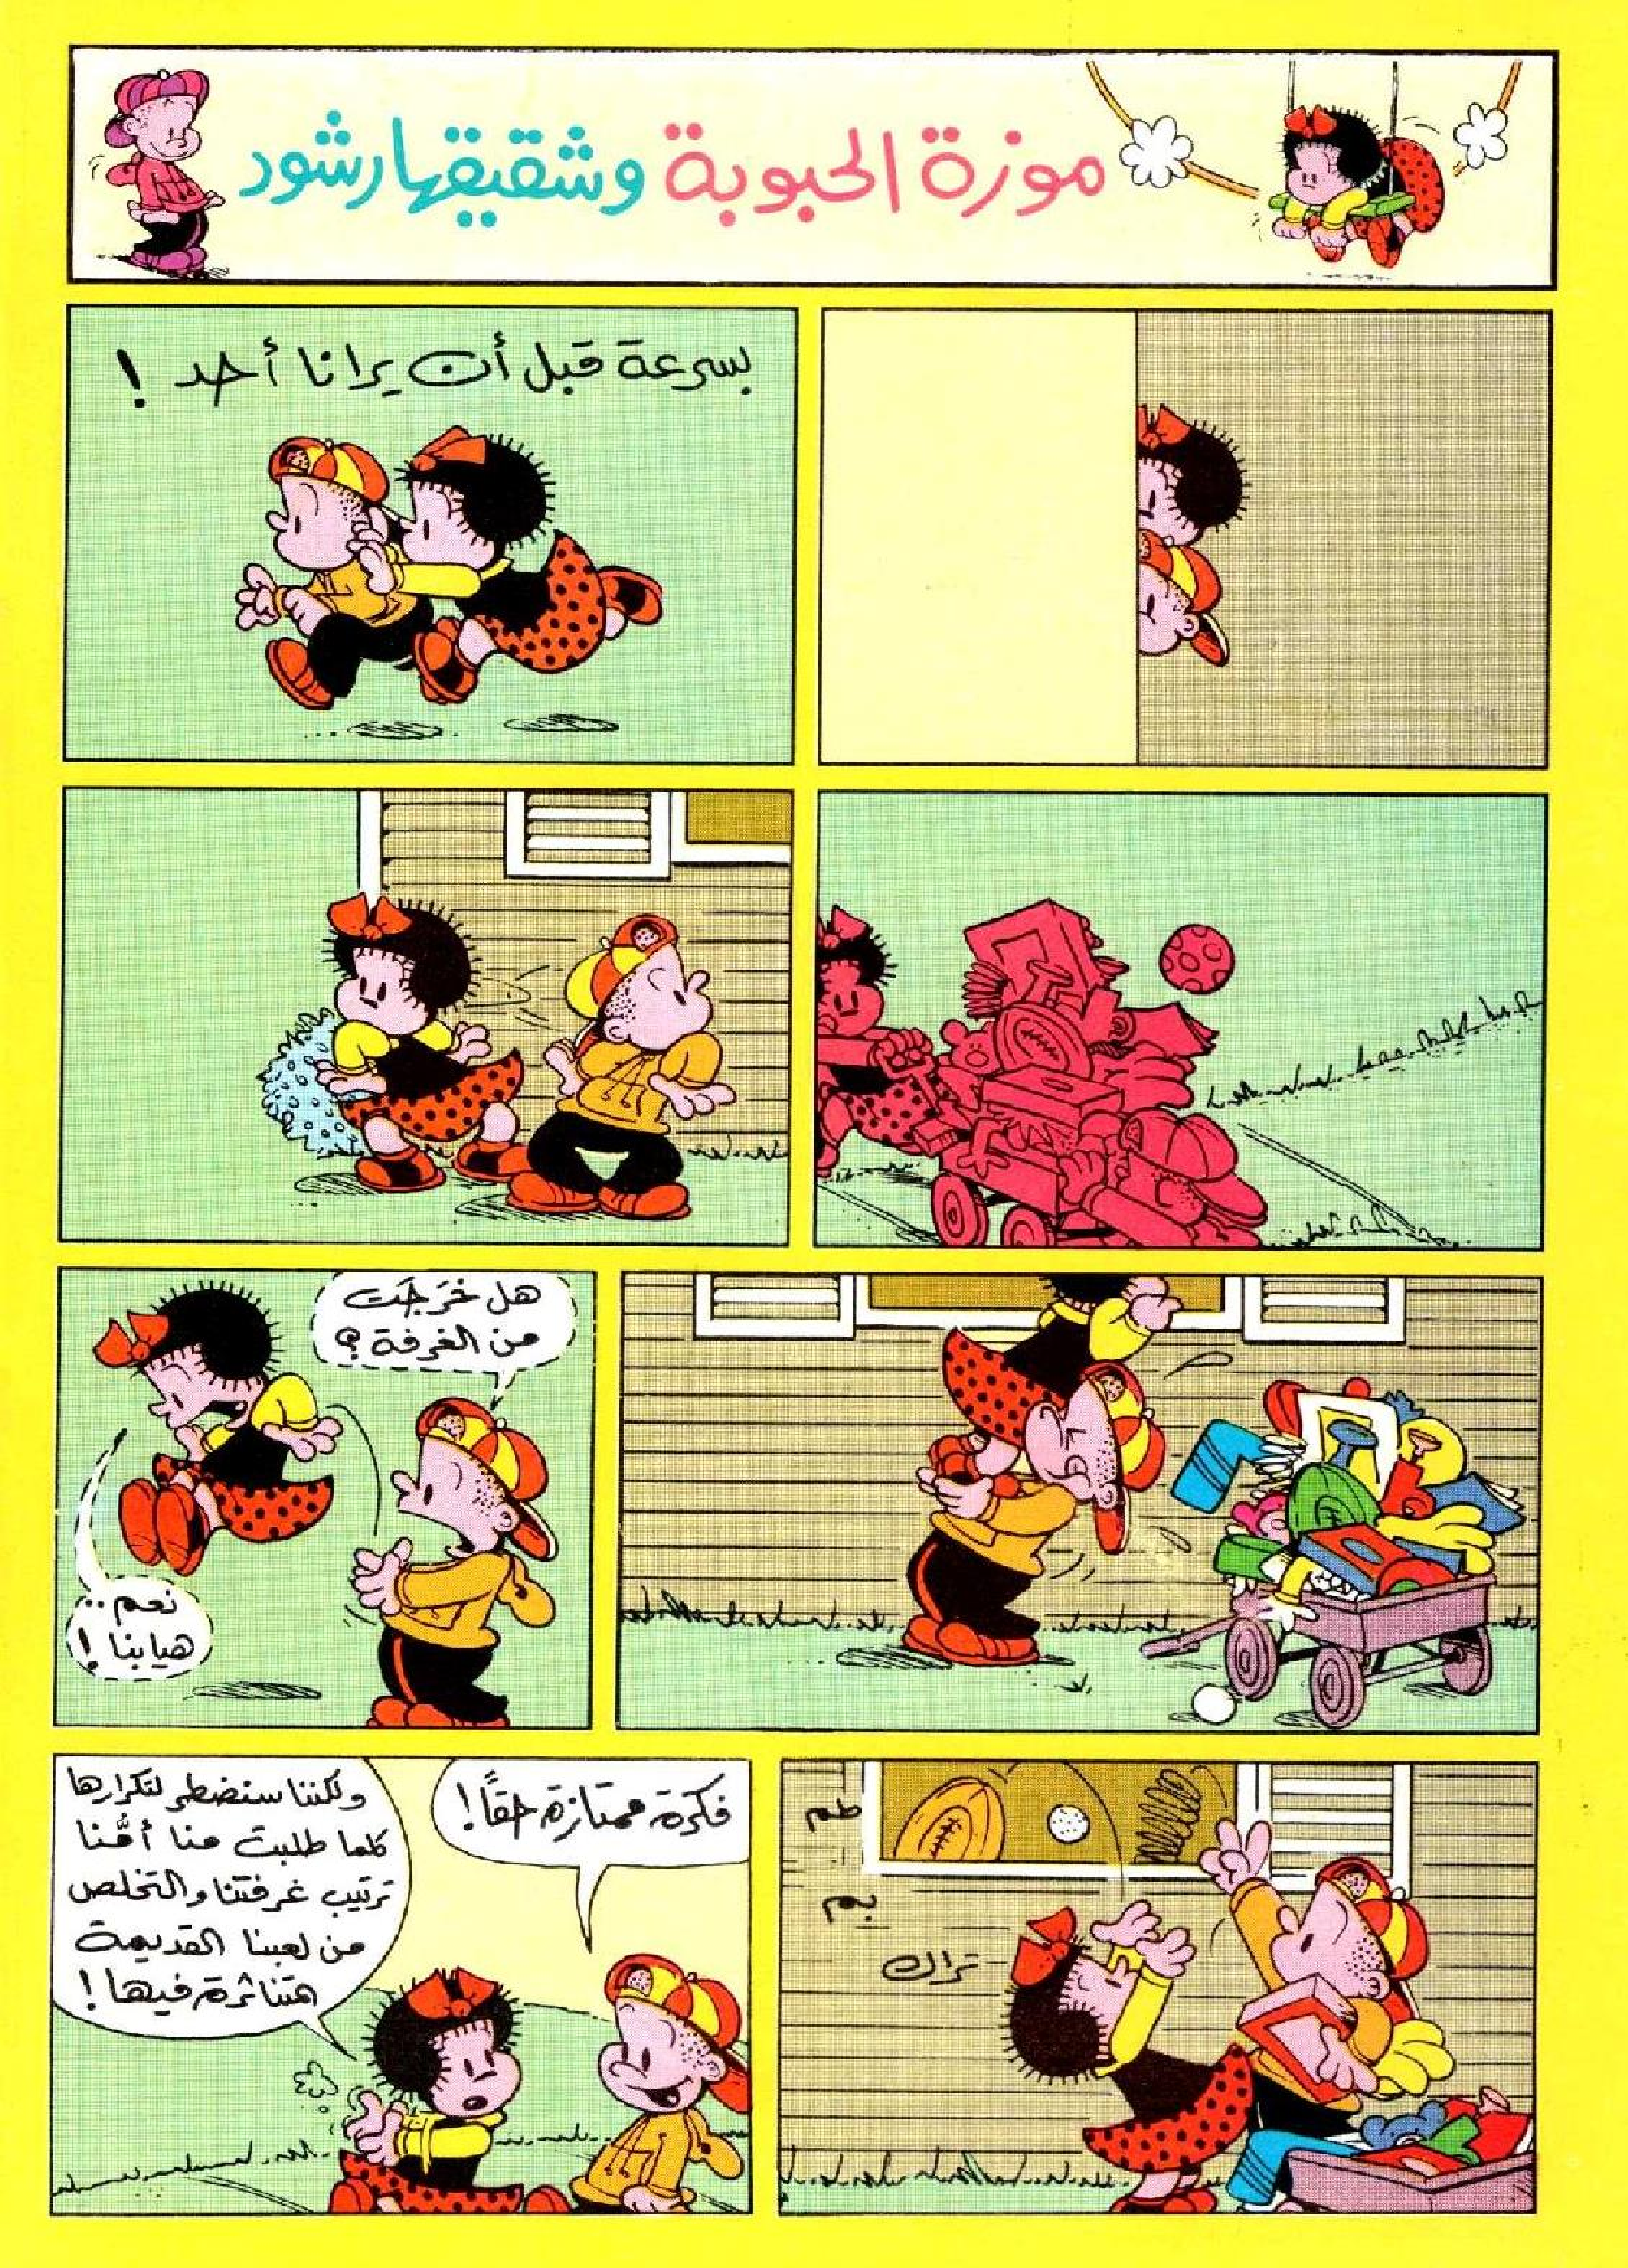 موزة الحبوبة وشقيقها رشود
بسرعة قبل أن يرانا أحد !
هل خَرجَت
من الغرفة ؟
نعم ..
هيا بنا !
طم
بم
تراك
فكرة ممتازة حقاً !
ولكننا سنضطر لتكرارها
كلما طلبت منا أمُّنا
ترتيب غرفتنا والتخلص
من لعبنا القديمة
المتناثرة فيها !